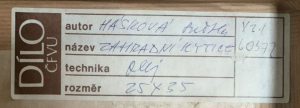 DÍLO
ČFVU
autor HÁSKOVÁ
název ZAHRADNÍ KYTICE
technika Olej
rozměr 25x35